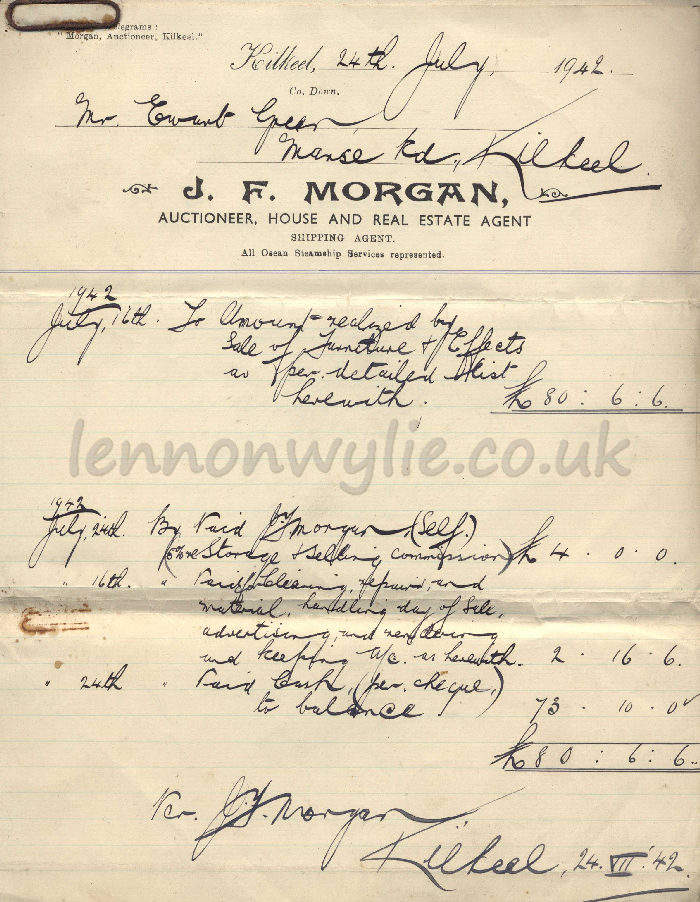 Telegrams:
"Morgan, Auctioneer, Kilkeel."
Kilkeel, 24th. July, 1942.
Co. Down.
Mr. Ewart Greer,
Manse Rd., Kilkeel.
J. F. MORGAN,
AUCTIONEER, HOUSE AND REAL ESTATE AGENT
SHIPPING AGENT.
All Ocean Steamship Services represented.
1942
July, 16th. To Amount realized by
Sale of Furniture & Effects
as per detailed list
herewith. £80 : 6 : 6.
lennonwylie.co.uk
1942
July, 24th. By Paid J.F. Morgan, (Self.)
(5% re Storage & selling commission) £4 . 0 . 0.
" 16th. " Paid Cleaning, repairs, and
material, handling day of Sale,
advertising, and rendering
and keeping A/c. as herewith. 2 . 16 . 6.
" 24th " Paid Cash, (per. cheque,)
to balance 73 . 10 . 0
£80 : 6 : 6.
Per. J.F. Morgan
Kilkeel, 24. VII '42.